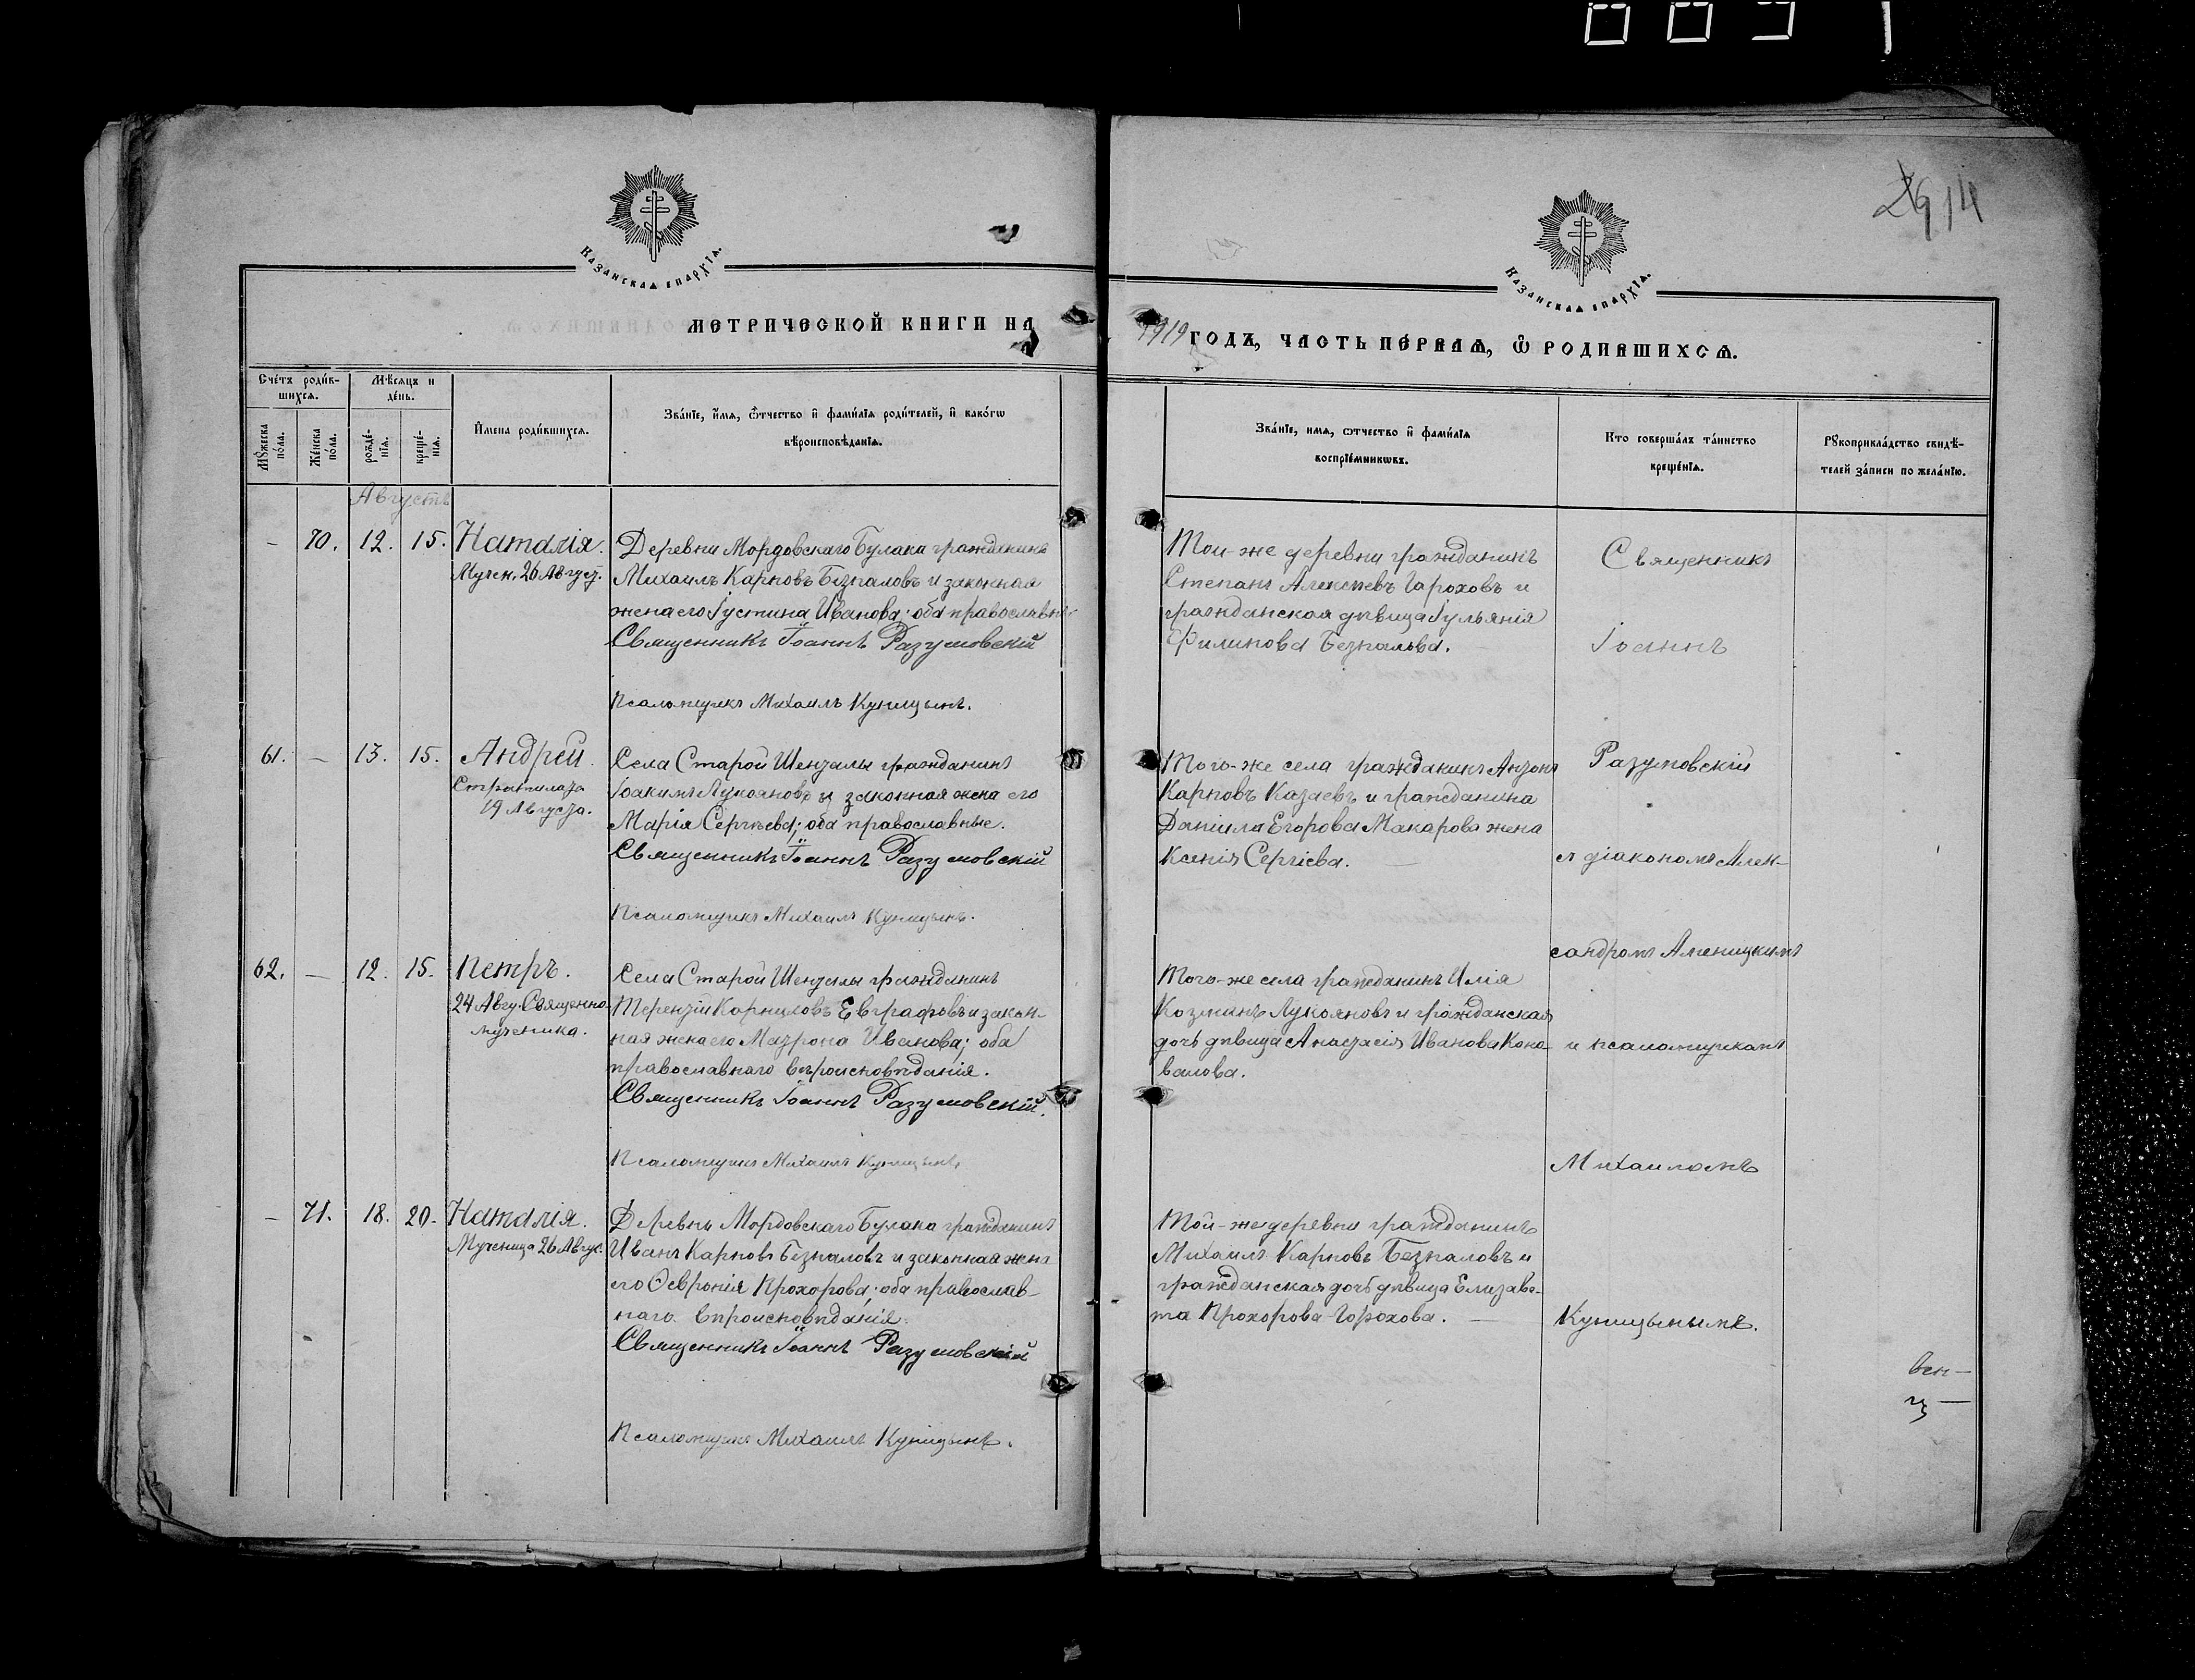 Казанская епархія.
Казанская епархія.
2914
МЕТРИЧЕСКОЙ КНИГИ НА
1919 ГОДЪ, ЧАСТЬ ПЕРВАЯ, Ѡ РОДИВШИХСЯ.
Счетъ родив-
шихся.
Мужеска
пола.
Женска
пола.
Мѣсяцъ и
день.
рожде-
нія.
креще-
нія.
Имена родившихся.
Званіе, имя, отчество и фамилія родителей, и какогѡ
вѣроисповѣданія.
Званіе, имя, ѡтчество и фамилія
воспріемникѡвъ.
Кто совершалъ таинство
крещенія.
Рукоприкладство свидѣ-
телей записи по желанію.
Августъ
- 70. 12. 15. Наталія.
Мучен. 26 Август.
Деревни Мордовскаго Булака гражданинъ
Михаилъ Карповъ Безпаловъ и законная
жена его Іустина Иванова; оба православн.
Священникъ Іоаннъ Разумовскій
Псаломщикъ Михаилъ Куницынъ.
Той-же деревни гражданинъ
Степанъ Алексѣевъ Гороховъ и
гражданская дѣвица Іульянія
Филипова Безпалова.
61. - 13. 15. Андрей.
Стратилата
19 Августа.
Села Старой Шенталы гражданинъ
Іоакимъ Лукояновъ и законная жена его
Марія Сергѣева; оба православные.
Священникъ Іоаннъ Разумовскій
Псаломщикъ Михаилъ Куницынъ.
Того-же села гражданинъ Антонъ
Карповъ Казаевъ и гражданина
Даніила Егорова Макарова жена
Ксенія Сергіева.
62. - 12. 15. Петръ.
24 Авгу. Священно-
мученика.
Села Старой Шенталы гражданинъ
Терентій Корниловъ Евграфовъ и закон-
ная жена его Матрона Иванова; оба
православнаго вѣроисповѣданія.
Священникъ Іоаннъ Разумовскій.
Псаломщикъ Михаилъ Куницынъ.
Того-же села гражданинъ Илія
Козминъ Лукояновъ и гражданская
дочь дѣвица Анастасія Иванова Коно-
валова.
- 71. 18. 20. Наталія.
Мученица 26 Авгус.
Деревнь Мордовскаго Булака гражданинъ
Иванъ Карповъ Безпаловъ и законная жена
его Ѳевронія Прохорова; оба православ-
наго вѣроисповѣданія.
Священникъ Іоаннъ Разумовскій
Псаломщикъ Михаилъ Куницынъ.
Той-же деревни гражданинъ
Михаилъ Карповъ Безпаловъ и
гражданская дочь дѣвица Елизаве-
та Прохорова Горохова.
Священникъ
Іоаннъ
Разумовскій
съ діакономъ Алек-
сандромъ Аменицкимъ
и псаломщикомъ
Михаиломъ
Куницынымъ.